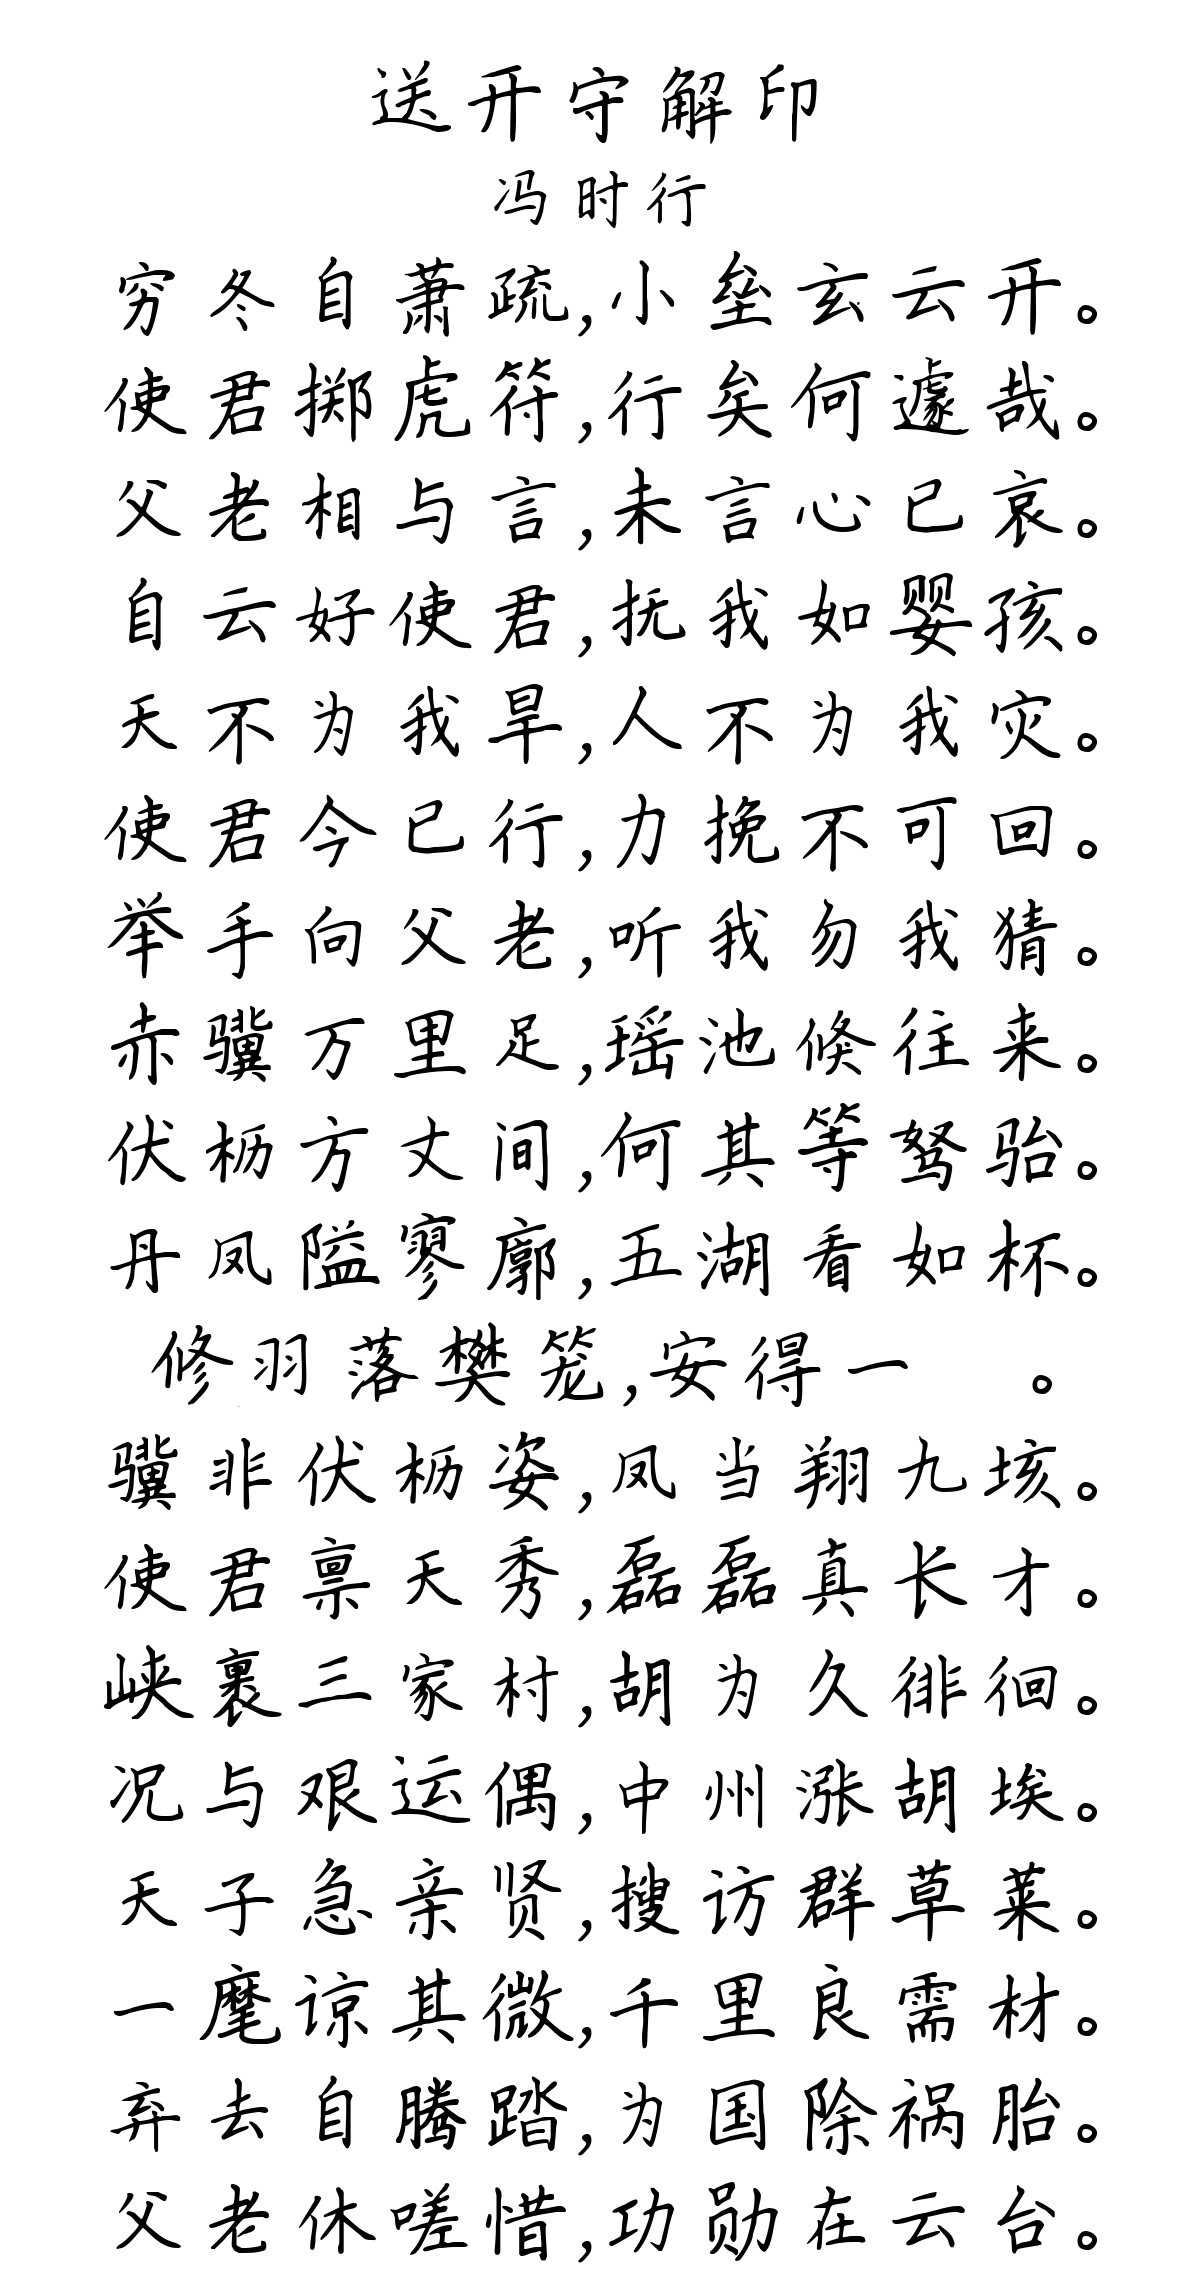 送开守解印
冯时行
穷冬自萧疏,小垒玄云开。
使君掷虎符,行矣何遽哉。
父老相与言,未言心已哀。
自云好使君,抚我如婴孩。
天不为我旱,人不为我灾。
使君今已行,力挽不可回。
举手向父老,听我勿我猜。
赤骥万里足,瑶池倏往来。
伏枥方丈间,何其等驽骀。
丹凤隘寥廓,五湖看如杯。
修羽落樊笼,安得一 。
骥非伏枥姿,凤当翔九垓。
使君禀天秀,磊磊真长才。
峡裹三家村,胡为久徘徊。
况与艰运偶,中州涨胡埃。
天子急亲贤,搜访群草莱。
一麾谅其微,千里良需材。
弃去自腾踏,为国除祸胎。
父老休嗟惜,功勋在云台。